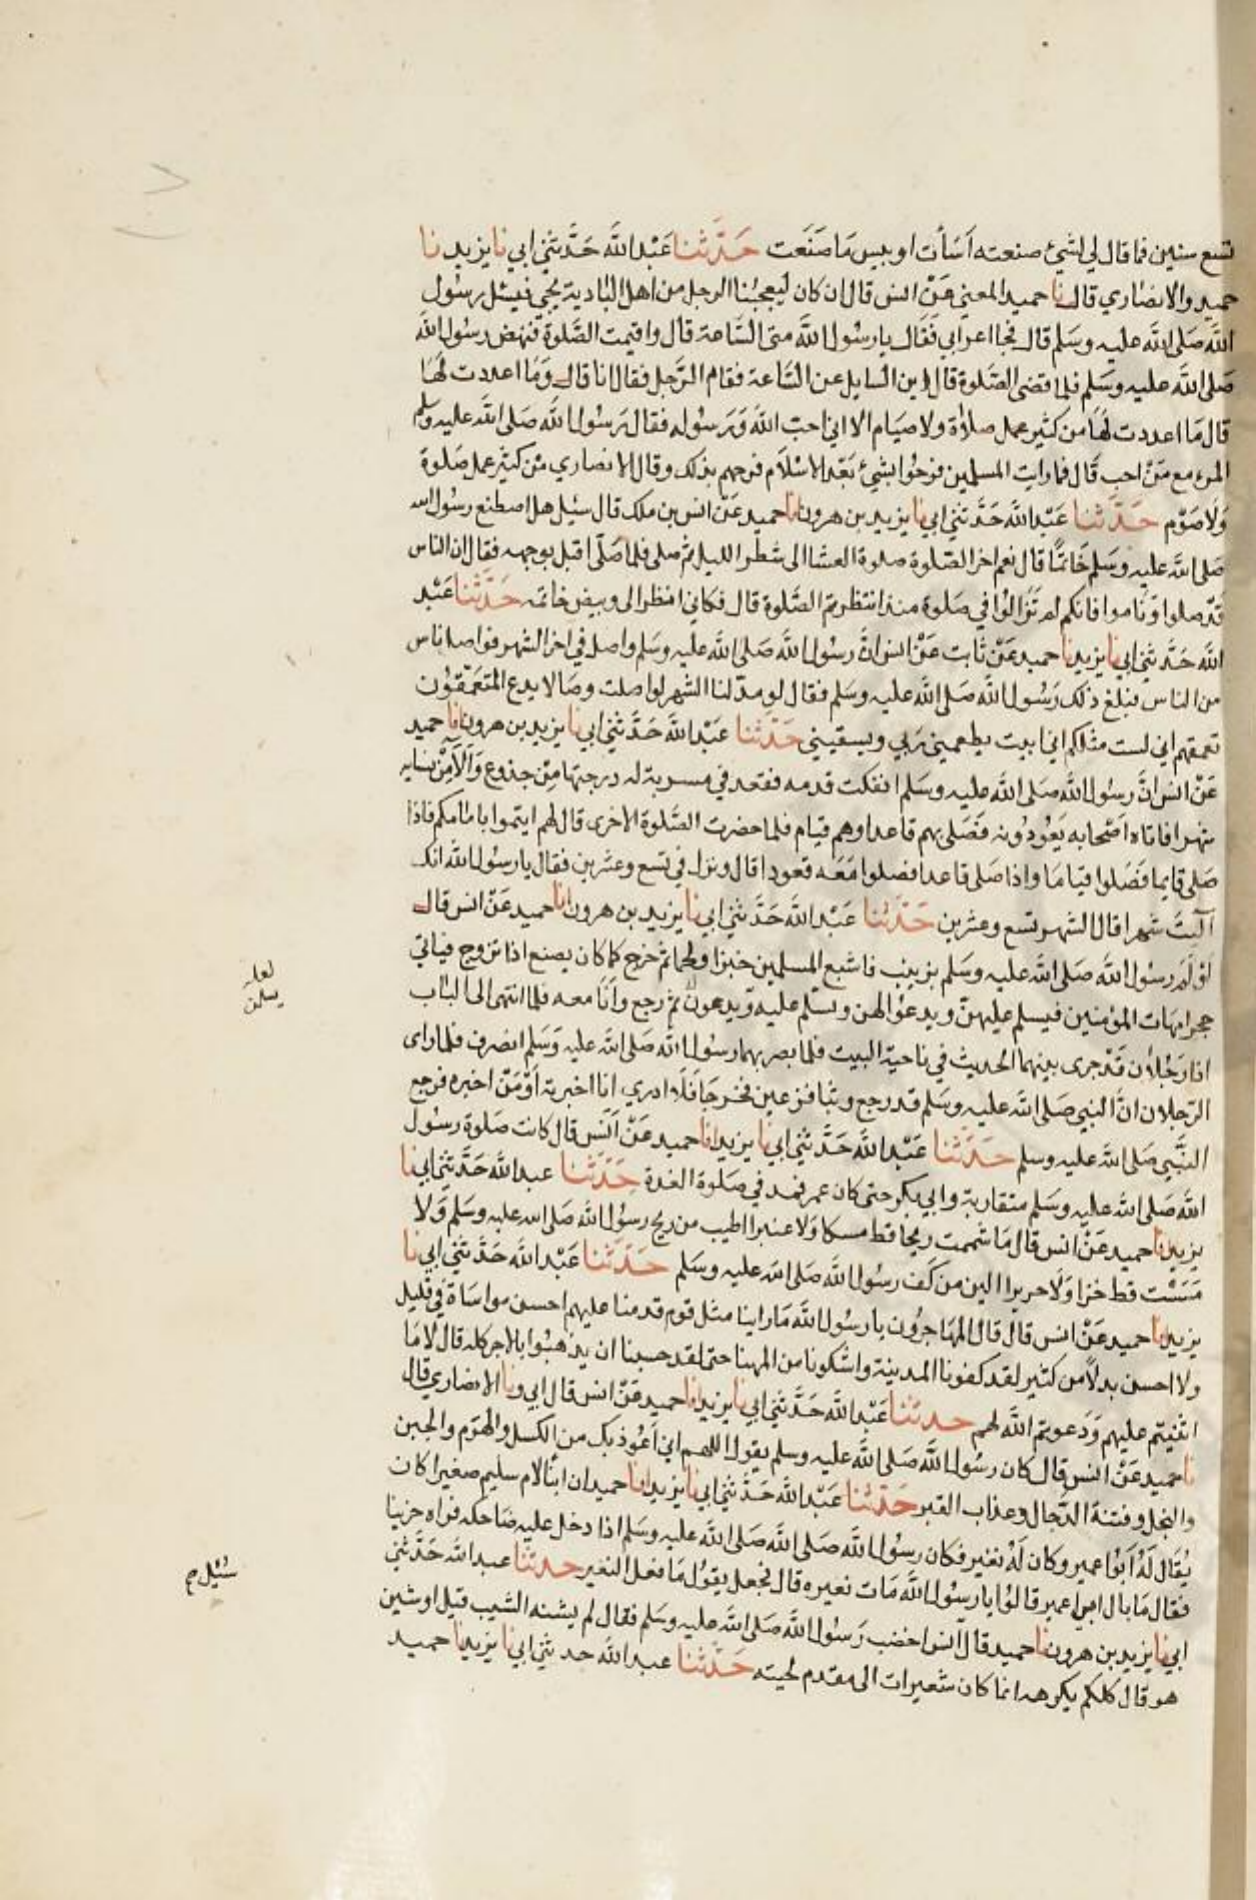 تسع سنين فما قال لي لشيء صنعته اسأت او بيس ما صنعت حدثنا عبد الله حدثني ابي نا يزيد نا
حميد والانصاري قال نا حميد المعني عن انس قال ان كان ليعجبنا الرجل من اهل البادية يجي فيسئل رسول
الله صلى الله عليه وسلم قال فجا اعرابي فقال يا رسول الله متى الساعة قال واقيمت الصلوة فنهض رسول الله
صلى الله عليه وسلم فلما قضى الصلوة قال اين السايل عن الساعة فقام الرجل فقال انا قال وما اعددت لها
قال ما اعددت لها من كثير عمل صلاة ولا صيام الا اني احب الله ورسوله فقال رسول الله صلى الله عليه وسلم
المرء مع من احب قال فما رايت المسلمين فرحوا بشيء بعد الاسلام فرحهم بذلك وقال الانصاري من كثير عمل صلوة
ولا صوم حدثنا عبد الله حدثني ابي نا يزيد بن هرون انا حميد عن انس بن ملك قال سئيل هل اصطنع رسول الله
صلى الله عليه وسلم خاتما قال نعم اخر الصلوة صلوة العشا الى شطر الليل ثم صلى فلما صلى اقبل بوجهه فقال ان الناس
قد صلوا وناموا فانكم لم تزالوا في صلوة منذ انتظرتم الصلوة قال فكاني انظر الى وبيض خاتمه حدثنا عبد
الله حدثني ابي نا يزيد نا حميد عن ثابت عن انس ان رسول الله صلى الله عليه وسلم واصل في اخر الشهر فواصل ناس
من الناس فبلغ ذلك رسول الله صلى الله عليه وسلم فقال لو مد لنا الشهر لواصلت وصالا يدع المتعمقون
تعمقهم اني لست مثلكم اني ابيت يطعمني ربي ويسقيني حدثنا عبد الله حدثني ابي نا يزيد بن هرون انا حميد
عن انس ان رسول الله صلى الله عليه وسلم انفكت قدمه فقعد في مسربة له درجتها من جذوع وآلا من نسايه
شهرا فاتاه اصحابه يعودونه فصلى بهم قاعدا وهم قيام فلما حضرت الصلوة الاخرى قال لهم ايتموا بامامكم فاذا
صلى قايما فصلوا قياما واذا صلى قاعدا فصلوا معه قعودا قال ونزل في تسع وعشرين فقال يا رسول الله انك
آليت شهرا قال الشهر تسع وعشرين حدثنا عبد الله حدثني ابي نا يزيد بن هرون انا حميد عن انس قال
اولم رسول الله صلى الله عليه وسلم بزينب فاشبع المسلمين خبزا ولحما ثم خرج كما كان يصنع اذا تزوج فياتي
حجر امهات المؤمنين فيسلم عليهن ويدعوا لهن ويسلم عليه ويدعون ثم رجع وانا معه فلما انتهى الى الباب
لعله
يسلمن
اذا رجلان قد جرى بينهما الحديث في ناحية البيت فلما بصر بهما رسول الله صلى الله عليه وسلم انصرف فلما راى
الرجلان ان النبي صلى الله عليه وسلم قد رجع وثبا فزعين فخرجا فلا ادري انا اخبرته او من اخبره فرجع
النبي صلى الله عليه وسلم حدثنا عبد الله حدثني ابي نا يزيد انا حميد عن انس قال كانت صلوة رسول
الله صلى الله عليه وسلم متقاربة وابي بكر حتى كان عمر فمد في صلوة الغدة حدثنا عبد الله حدثني ابي نا
يزيد نا حميد عن انس قال ما شممت ريحا قط مسكا ولا عنبرا اطيب من ريح رسول الله صلى الله عليه وسلم ولا
مسست قط خزا ولا حريرا الين من كف رسول الله صلى الله عليه وسلم حدثنا عبد الله حدثني ابي نا
يزيد نا حميد عن انس قال قال المهاجرون يا رسول الله ما راينا مثل قوم قدمنا عليهم احسن مواساة في قليل
ولا احسن بدلا من كثير لقد كفونا المدينة واشكونا من المهنا حتى لقد حسبنا ان يذهبوا بالاجر كله قال لا ما
اثنيتم عليهم ودعوتم الله لهم حدثنا عبد الله حدثني ابي نا يزيد انا حميد عن انس قال ابي ونا الانصاري قال
نا حميد عن انس قال كان رسول الله صلى الله عليه وسلم يقول اللهم اني اعوذ بك من الكسل والهرم والجبن
والبخل وفتنة الدجال وعذاب القبر حدثنا عبد الله حدثني ابي نا يزيد انا حميد ان ابنا لام سليم صغيرا كان
يقال له ابوا عمير وكان له نغير فكان رسول الله صلى الله صلى الله عليه وسلم اذا دخل عليه ضاحكه فراه حزينا
فقال ما بال ابي عمير قالوا يا رسول الله مات نغيره قال فجعل يقول ما فعل النغير حدثنا عبد الله حدثني
ابي نا يزيد بن هرون نا حميد قال انس اخضب رسول الله صلى الله عليه وسلم فقال لم يشنه الشيب قيل او شين
سئيل م
هو قال كلكم يكرهه انما كان شعيرات الى مقدم لحيته حدثنا عبد الله حدثني ابي نا يزيد نا حميد